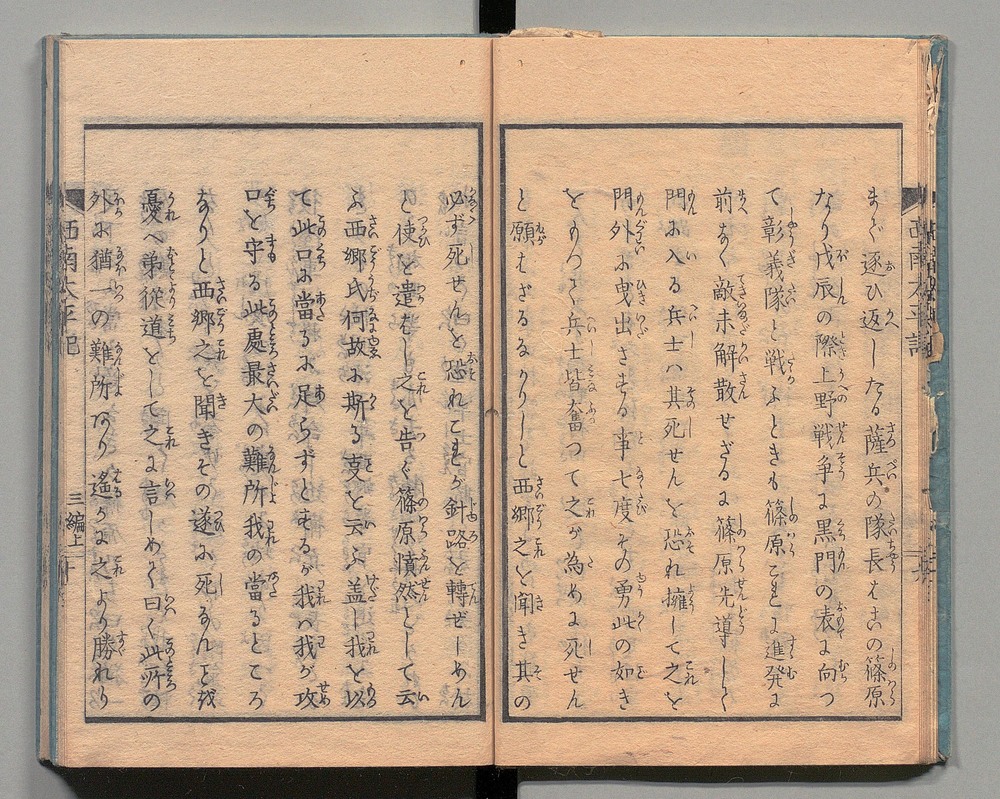 まで逐ひ返したる薩兵の隊長はこの篠原
なり戊辰の際上野戦争に黒門の表に向つ
て彰義隊と戦ふときも篠原これに進発し
前なく敵未解散せざるに篠原先導して
門に入る兵士ハ其死せんを恐れ擁して之を
門外に曳出さする事七度その勇此の如き
をもつて兵士皆奮つて之が為めに死せん
と願はざるなかりしと西郷之を聞き其の
必ず死せんを恐れこれが針路を轉ぜしめん
と使を遣はし之を告ぐ篠原憤然として云
ふ西郷氏何故に斯る支を云ふ盖し我を以
て此口に當るに足らずとするか我ハ我が攻
口を守る此處最大の難所我の當るところ
なりと西郷之を聞きその遂に死なんを
憂へ弟従道をして之に言しめて曰く此所の
外に猶一の難所あり遙かに之より勝れり
西南太平記
三編上
十